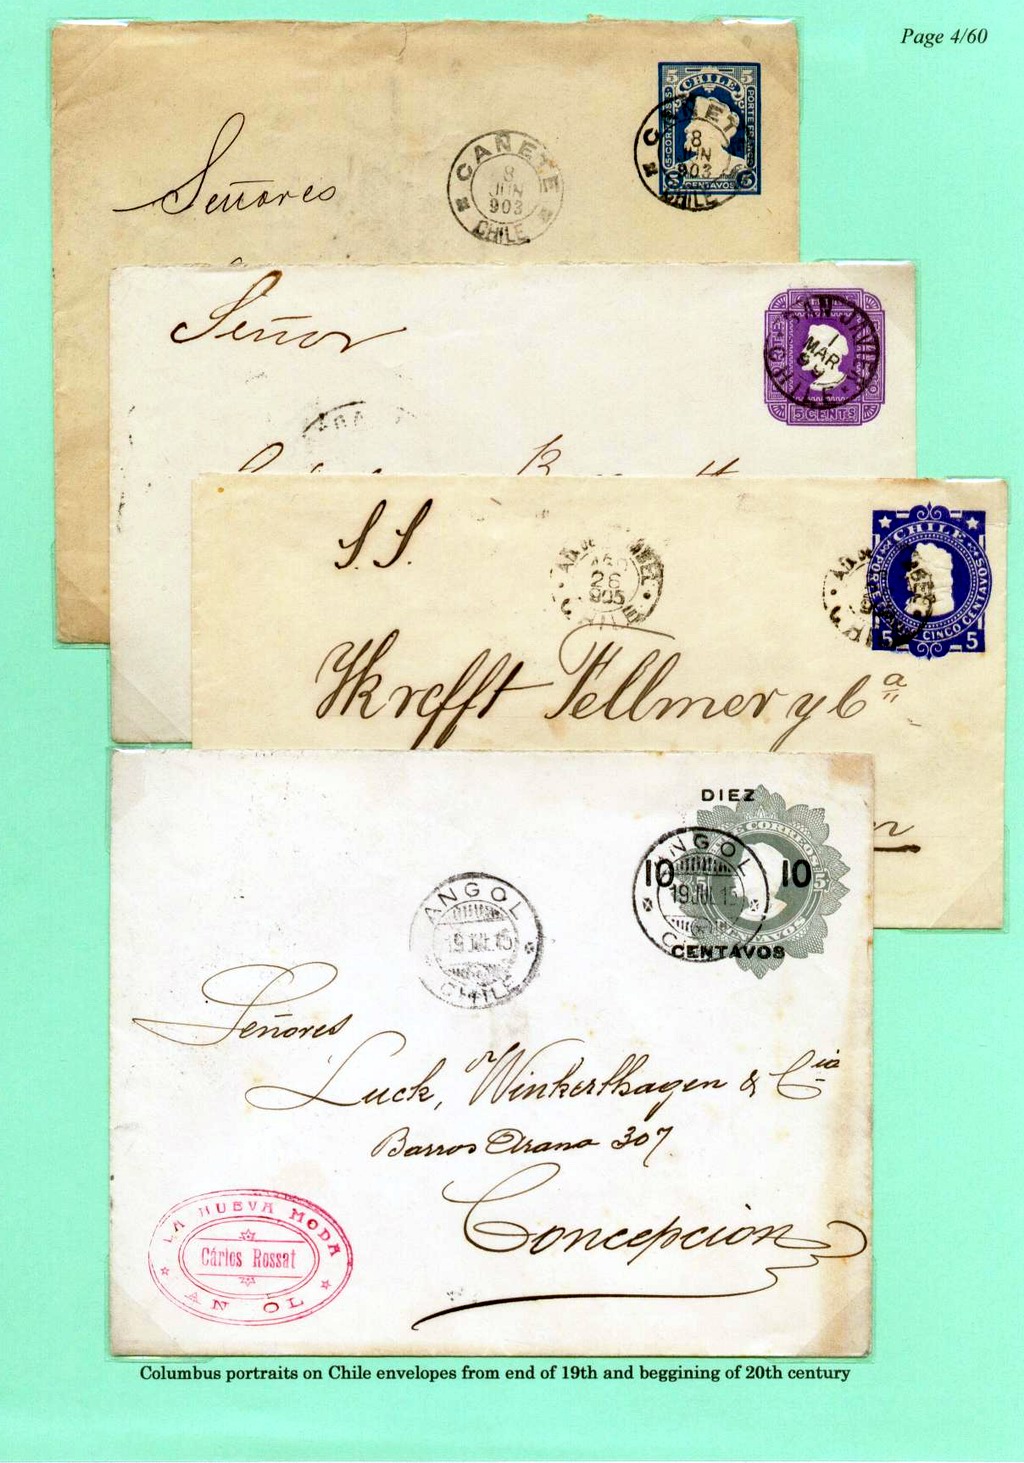 Page 4/60
5 CHILE 5
CORREOS PORTE FRANCO
5 CENTAVOS 5
CAÑETE
8
JUN
903
CHILE
CAÑETE
8
JUN
903
CHILE
Señores
Señor
SAN JAVIER
1
MAR
99
CHILE
5 CENTS
S. S.
26
905
CHILE
CHILE
5 CINCO CENTAVOS 5
Krefft Fellmer y Cª
DIEZ
CORREOS
10 10
CENTAVOS
ANGOL
19 JUL 15
CHILE
ANGOL
19 JUL 15
Señores
Luck, Winkerlhagen & Cia
Barros Arana 307
Concepcion
LA NUEVA MODA
Cárlos Rossat
AN OL
Columbus portraits on Chile envelopes from end of 19th and beggining of 20th century